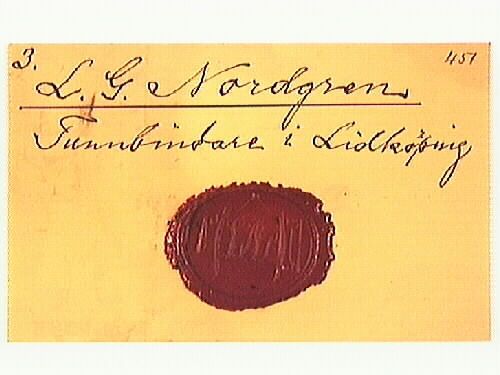 3.
451
L. G. Nordgren
Tunnbindare i Lidköping